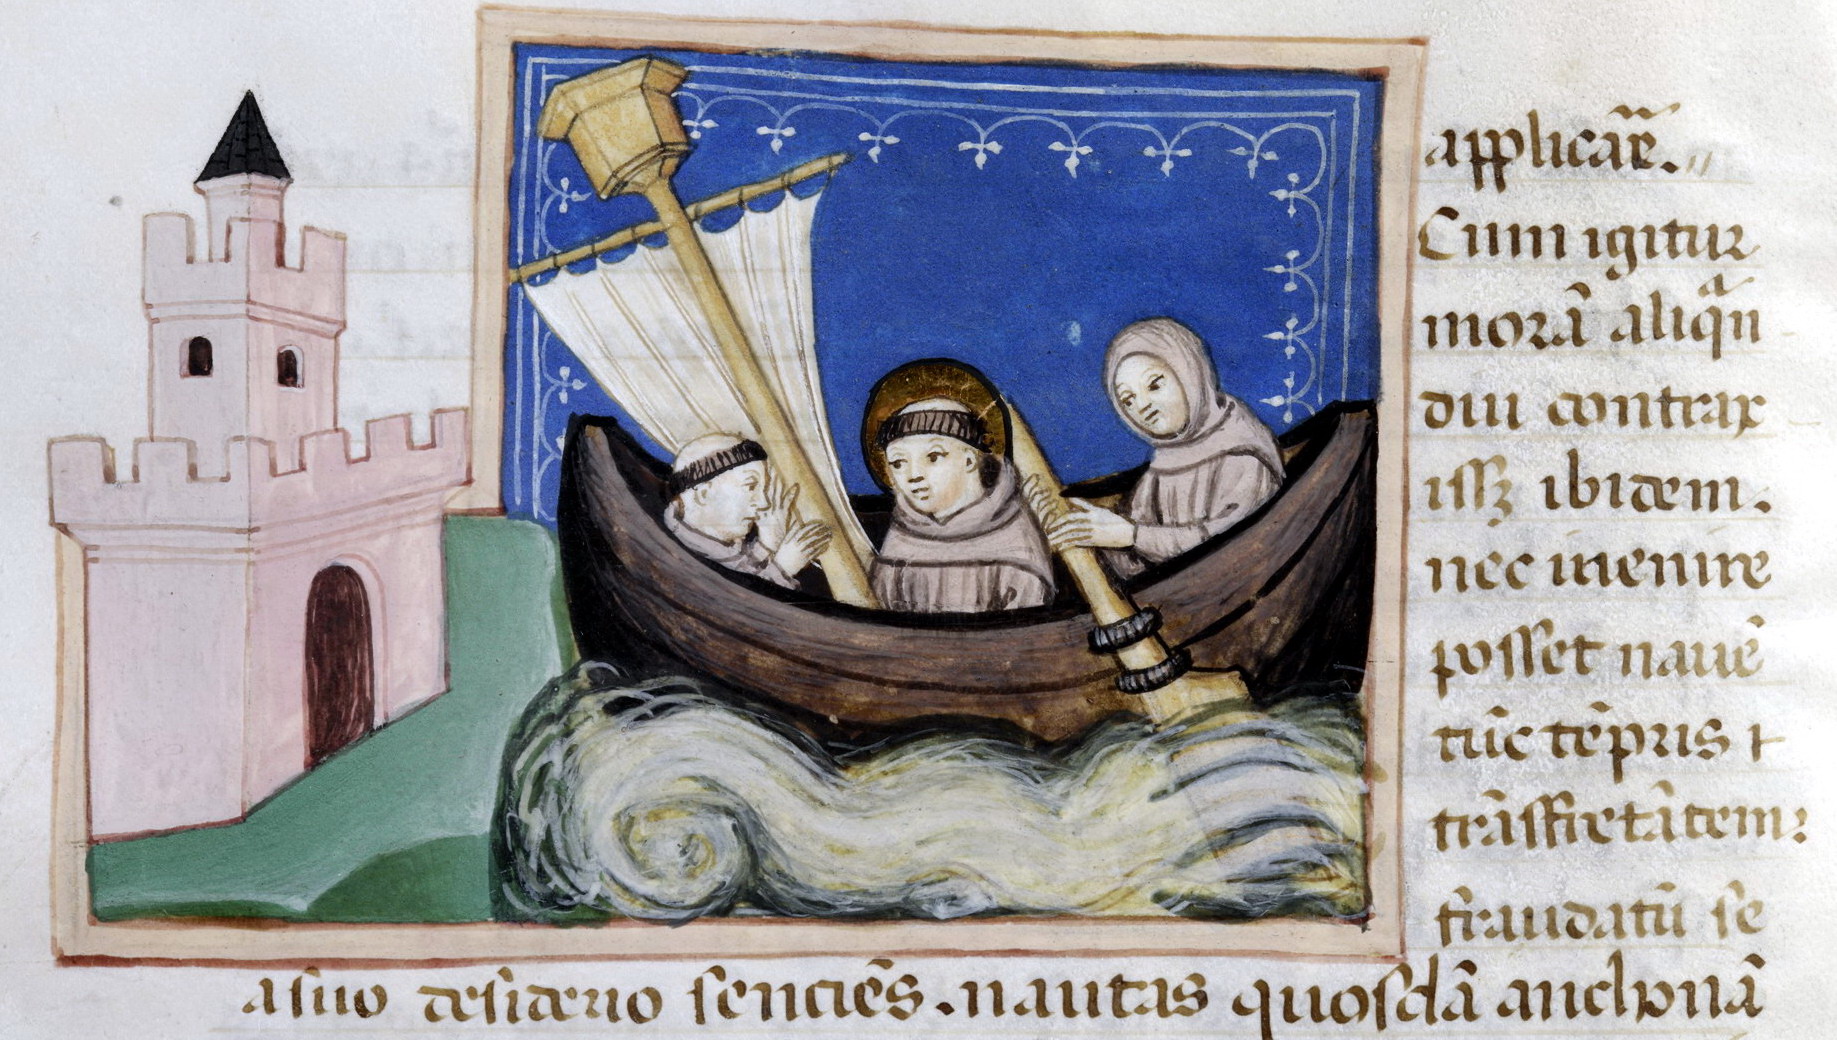 applicar̄e.
Cum igitur
morā aliqͣn
diu contrax
issꝫ ibidem.
nec inuenire
posset nauē
tūc tēpris ⁊
trāsfretātem:
fraudatū se
a suo desiderio senciēs. nautas quosdā anchonā